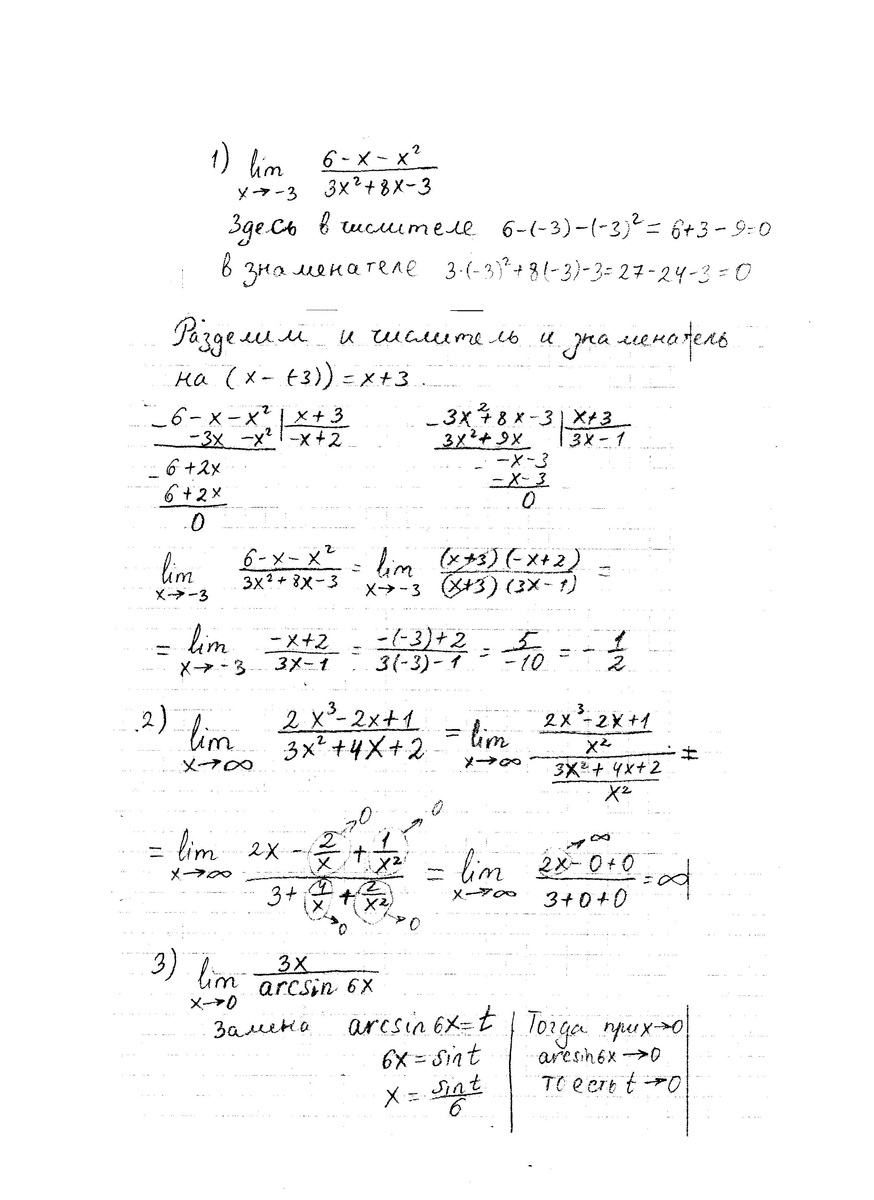 1) lim x→-3 (6-x-x²)/(3x²+8x-3)
Здесь в числителе 6-(-3)-(-3)² = 6+3-9=0
в знаменателе 3·(-3)²+8(-3)-3=27-24-3=0
Разделим и числитель и знаменатель
на (x-(-3))=x+3.
6-x-x² | x+3
-3x -x² | -x+2
6+2x
6+2x
0
3x²+8x-3 | x+3
3x²+9x | 3x-1
-x-3
-x-3
0
lim x→-3 (6-x-x²)/(3x²+8x-3) = lim x→-3 ((x+3)(-x+2))/((x+3)(3x-1)) =
= lim x→-3 (-x+2)/(3x-1) = (-(-3)+2)/(3(-3)-1) = 5/-10 = -1/2
2) lim x→∞ (2x³-2x+1)/(3x²+4x+2) = lim x→∞ ((2x³-2x+1)/x²)/((3x²+4x+2)/x²) =
= lim x→∞ (2x - 2/x→0 + 1/x²→0)/(3 + 4/x→0 + 2/x²→0) = lim x→∞ (2x→∞ -0+0)/(3+0+0) = ∞
3) lim x→0 3x/(arcsin 6x)
Замена arcsin 6x=t
6x=sint
x = sint/6
Тогда при x→0
arcsin6x→0
то есть t→0